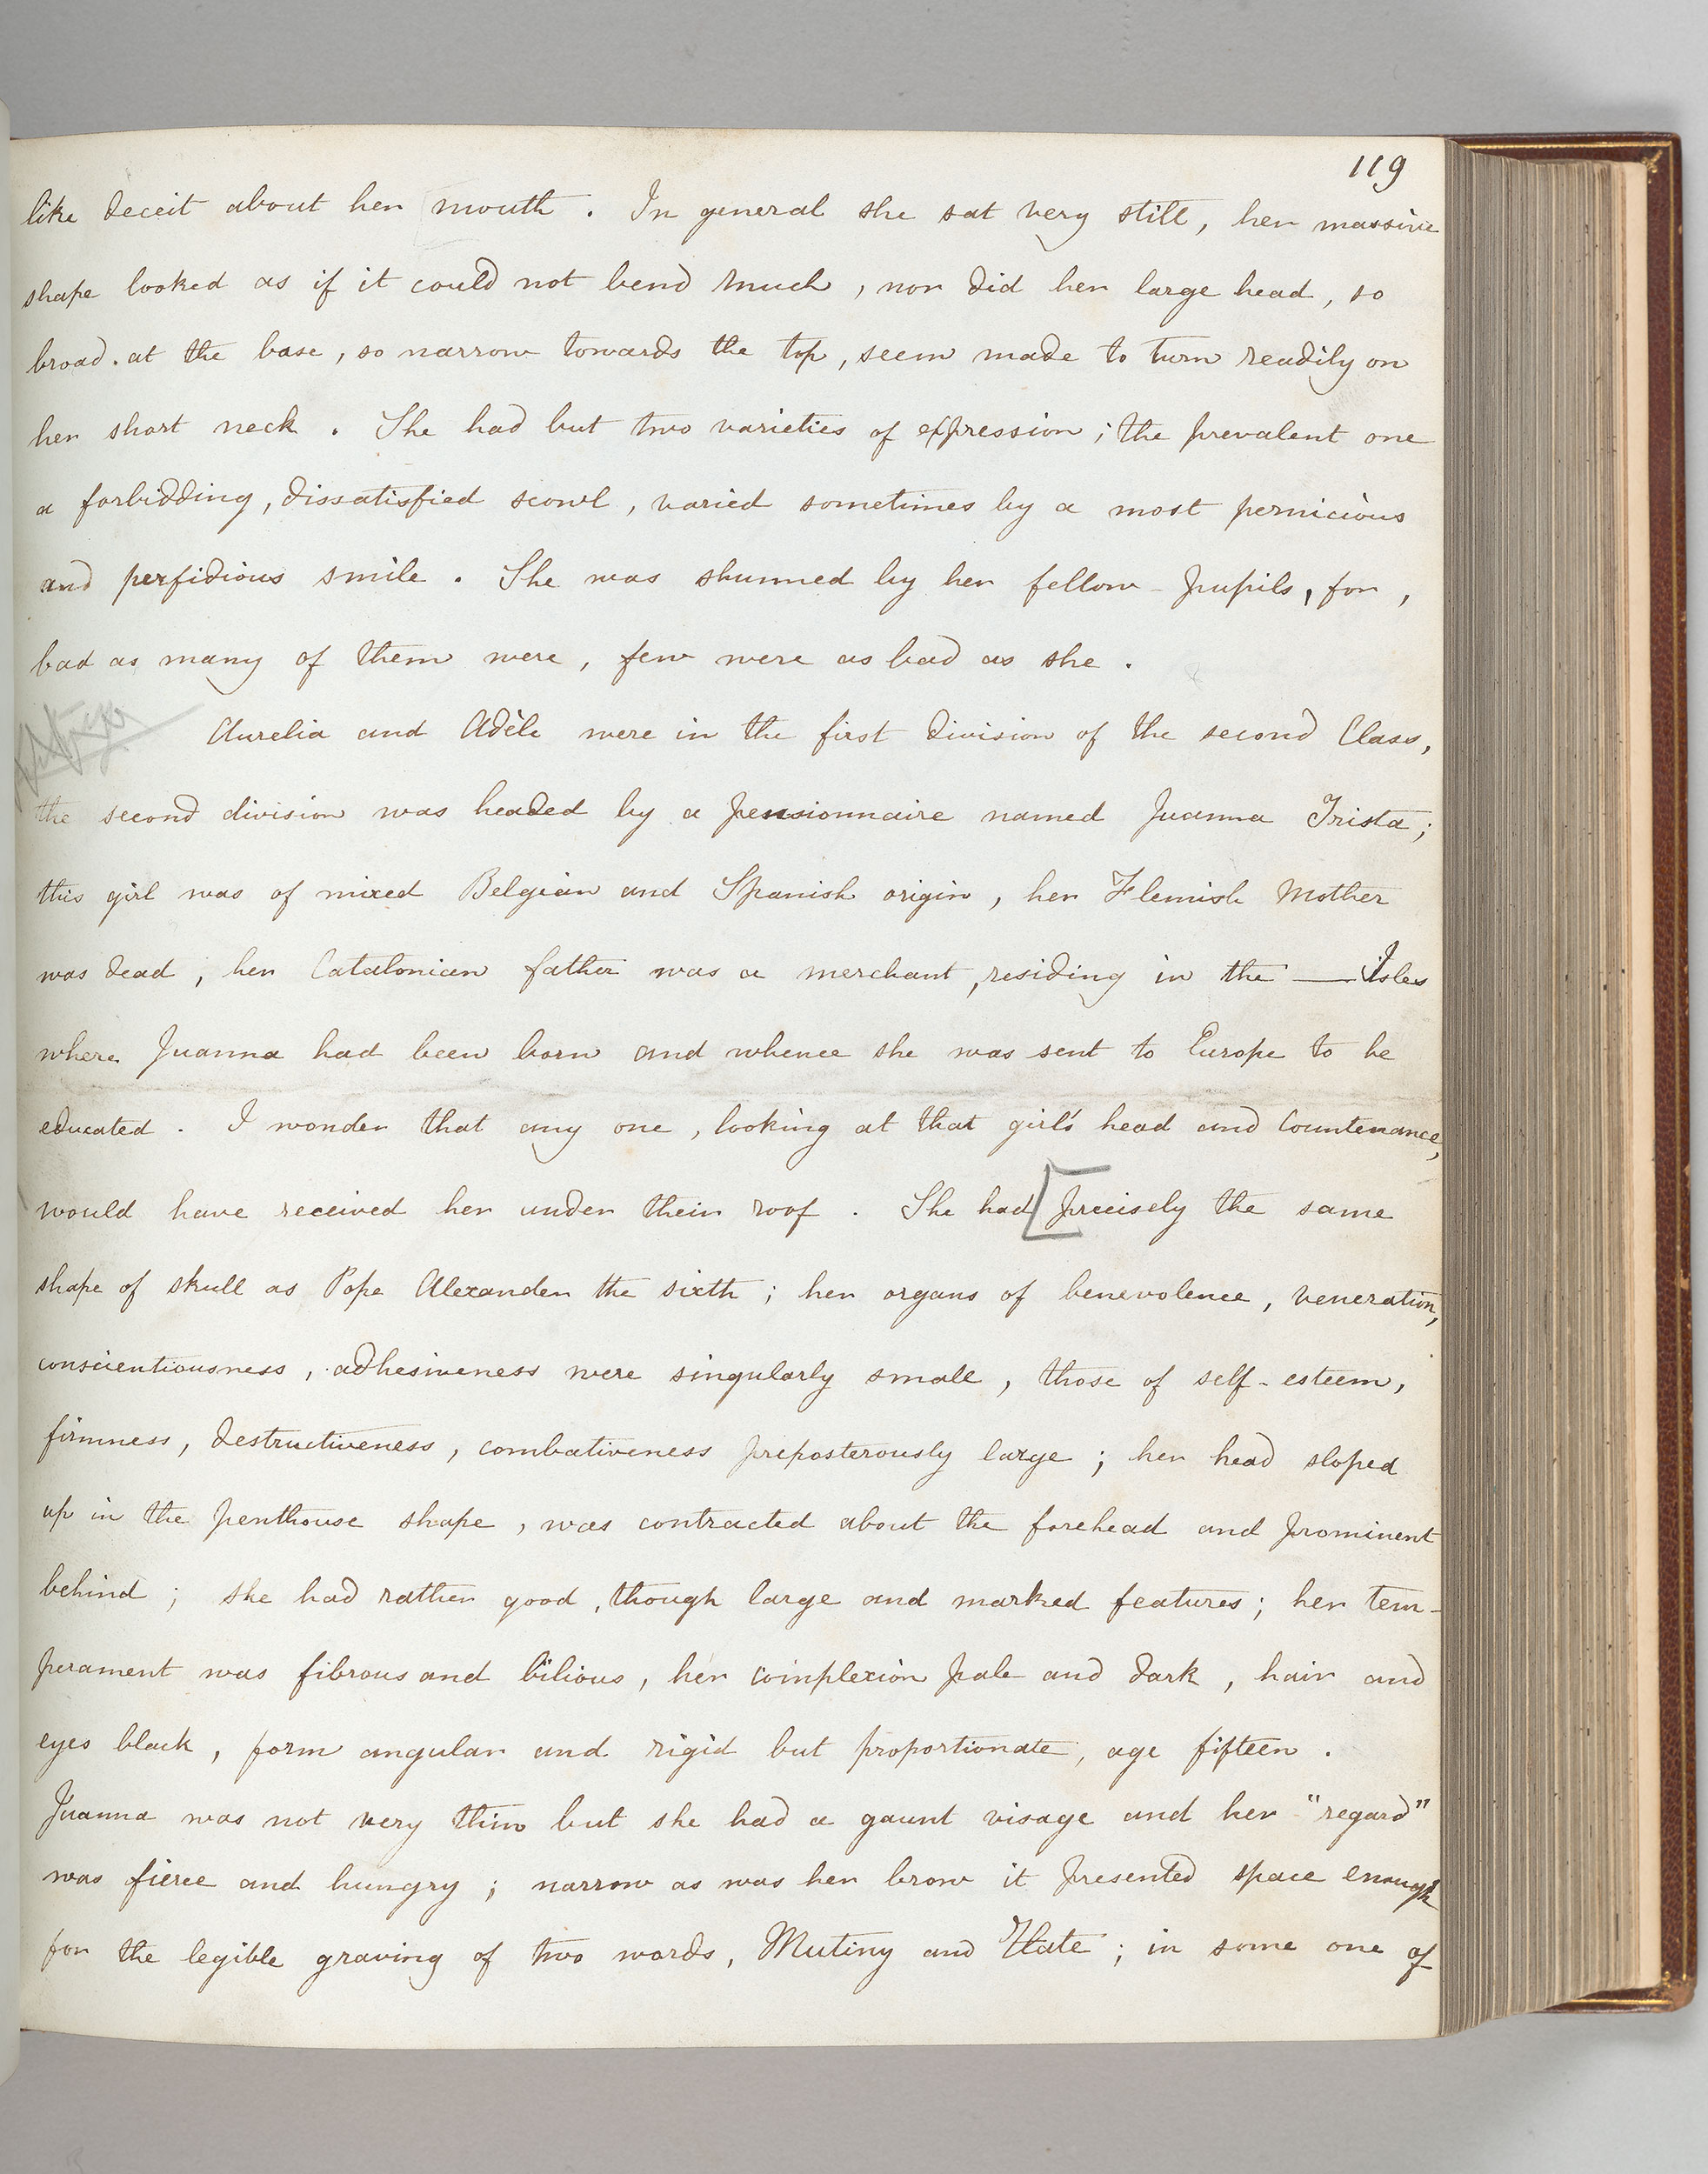 119
like deceit about her mouth. In general she sat very still, her massive
shape looked as if it could not bend much, nor did her large head, so
broad at the base, so narrow towards the top, seem made to turn readily on
her short neck. She had but two varieties of expression; the prevalent one
a forbidding, dissatisfied scowl, varied sometimes by a most pernicious
and perfidious smile. She was shunned by her fellow-pupils, for,
bad as many of them were, few were as bad as she.
Aurelia and Adèle were in the first division of the second Class,
the second division was headed by a pensionnaire named Juanna Trista;
this girl was of mixed Belgian and Spanish origin, her Flemish Mother
was dead, her Catalonian father was a merchant, residing in the — Isles
where Juanna had been born and whence she was sent to Europe to be
educated. I wonder that any one, looking at that girl's head and Countenance,
would have received her under their roof. She had [precisely the same
shape of skull as Pope Alexander the sixth; her organs of benevolence, veneration,
conscientiousness, adhesiveness were singularly small, those of self-esteem,
firmness, destructiveness, combativeness preposterously large; her head sloped
up in the penthouse shape, was contracted about the forehead and prominent
behind; she had rather good, though large and marked features; her tem-
perament was fibrous and bilious, her complexion pale and dark, hair and
eyes black, form angular and rigid but proportionate, age fifteen.
Juanna was not very thin but she had a gaunt visage and her "regard"
was fierce and hungry; narrow as was her brow it presented space enough
for the legible graving of two words, Mutiny and Hate; in some one of